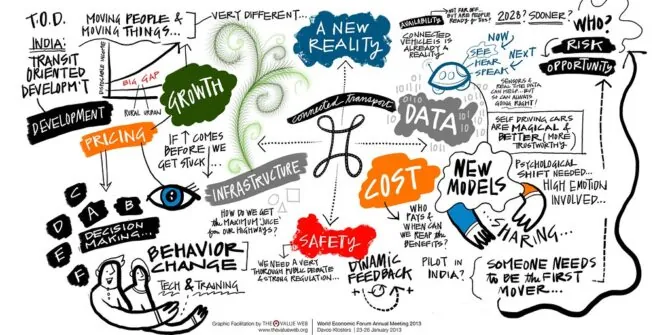 T.O.D.
INDIA:
TRANSIT
ORIENTED
DEVELOPM'T
MOVING PEOPLE &
MOVING THINGS...
VERY DIFFERENT...
DISPOSABLE INCOME
BIG GAP
RURAL URBAN
GROWTH
DEVELOPMENT
PRICING
IF ↑ COMES
BEFORE ↓ WE
GET STUCK...
INFRASTRUCTURE
HOW DO WE GET
the MAXIMUM 'JUICE'
from OUR HIGHWAYS?
A NEW
REALITY
connected transport
AVAILABILITY
NOT FAR OFF...
BUT ARE PEOPLE
READY for IT?
CONNECTED
VEHICLE IS
ALREADY A
REALITY
NOW
NEXT
SEE
HEAR
SPEAK
SENSORS &
REAL TIME DATA
CAN HELP... BUT
SO CAN ALWAYS
GOING RIGHT!
2028? SOONER?
WHO?
RISK
OPPORTUNITY
DATA
SELF DRIVING CARS
ARE MAGICAL &
BETTER (MORE
TRUSTWORTHY)
PSYCHOLOGICAL
SHIFT NEEDED...
HIGH EMOTION
INVOLVED...
NEW
MODELS
SHARING...
COST
WHO
PAYS &
WHEN CAN
WE REAP the
BENEFITS?
PILOT IN
INDIA?
SOMEONE NEEDS
to BE the FIRST
MOVER...
SAFETY
WE NEED A VERY
THOROUGH PUBLIC DEBATE
& STRONG REGULATION...
DYNAMIC
FEEDBACK
D C A B
E F
DECISION
MAKING...
BEHAVIOR
CHANGE
TECH & TRAINING
Graphic Facilitation by THE VALUE WEB
www.thevalueweb.org
World Economic Forum Annual Meeting 2013
Davos-Klosters | 23-26 January 2013